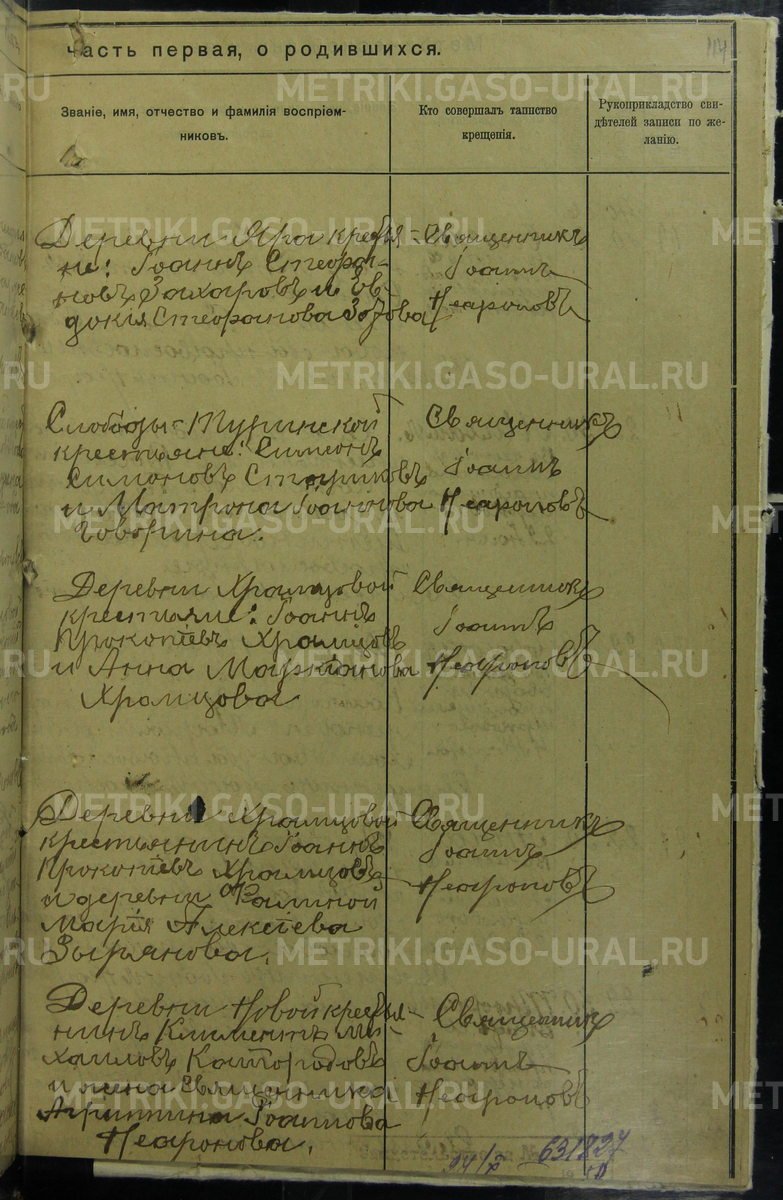 часть первая, о родившихся.
114
Званіе, имя, отчество и фамилія воспріем-
никовъ.
Кто совершалъ таинство
крещенія.
Рукоприкладство сви-
дѣтелей записи по же-
ланію.
Деревни Яра крестья-
не: Іоаннъ Стефа-
новъ Захаровъ и Ев-
докія Стефанова Зо
Священникъ
Іоаннъ
Неароновъ
Слободы-Туринской
крестьяне: Симеонъ
Симоновъ Стариковъ
и Матрона Іоаннова
Говорина.
Священникъ
Іоаннъ
Неароновъ
Деревни Храмцовой
крестьяне: Іоаннъ
Прокопіевъ Храмцовъ
и Анна Маркіанова
Храмцова
Священникъ
Іоаннъ
Неароновъ
Деревни Храмцовой
крестьянинъ Іоаннъ
Прокопіевъ Храмцовъ
и деревни Фалиной
Марія Алексіева
Зырянова.
Священникъ
Іоаннъ
Неароновъ
Деревни Новой крестья-
нинъ Климентъ Ми-
хаиловъ Катогородовъ
и жена Священника
Агриппина Іоаннова
Неаронова.
Священник
Іоаннъ
Неароновъ
631827
METRIKI.GASO-URAL.RU